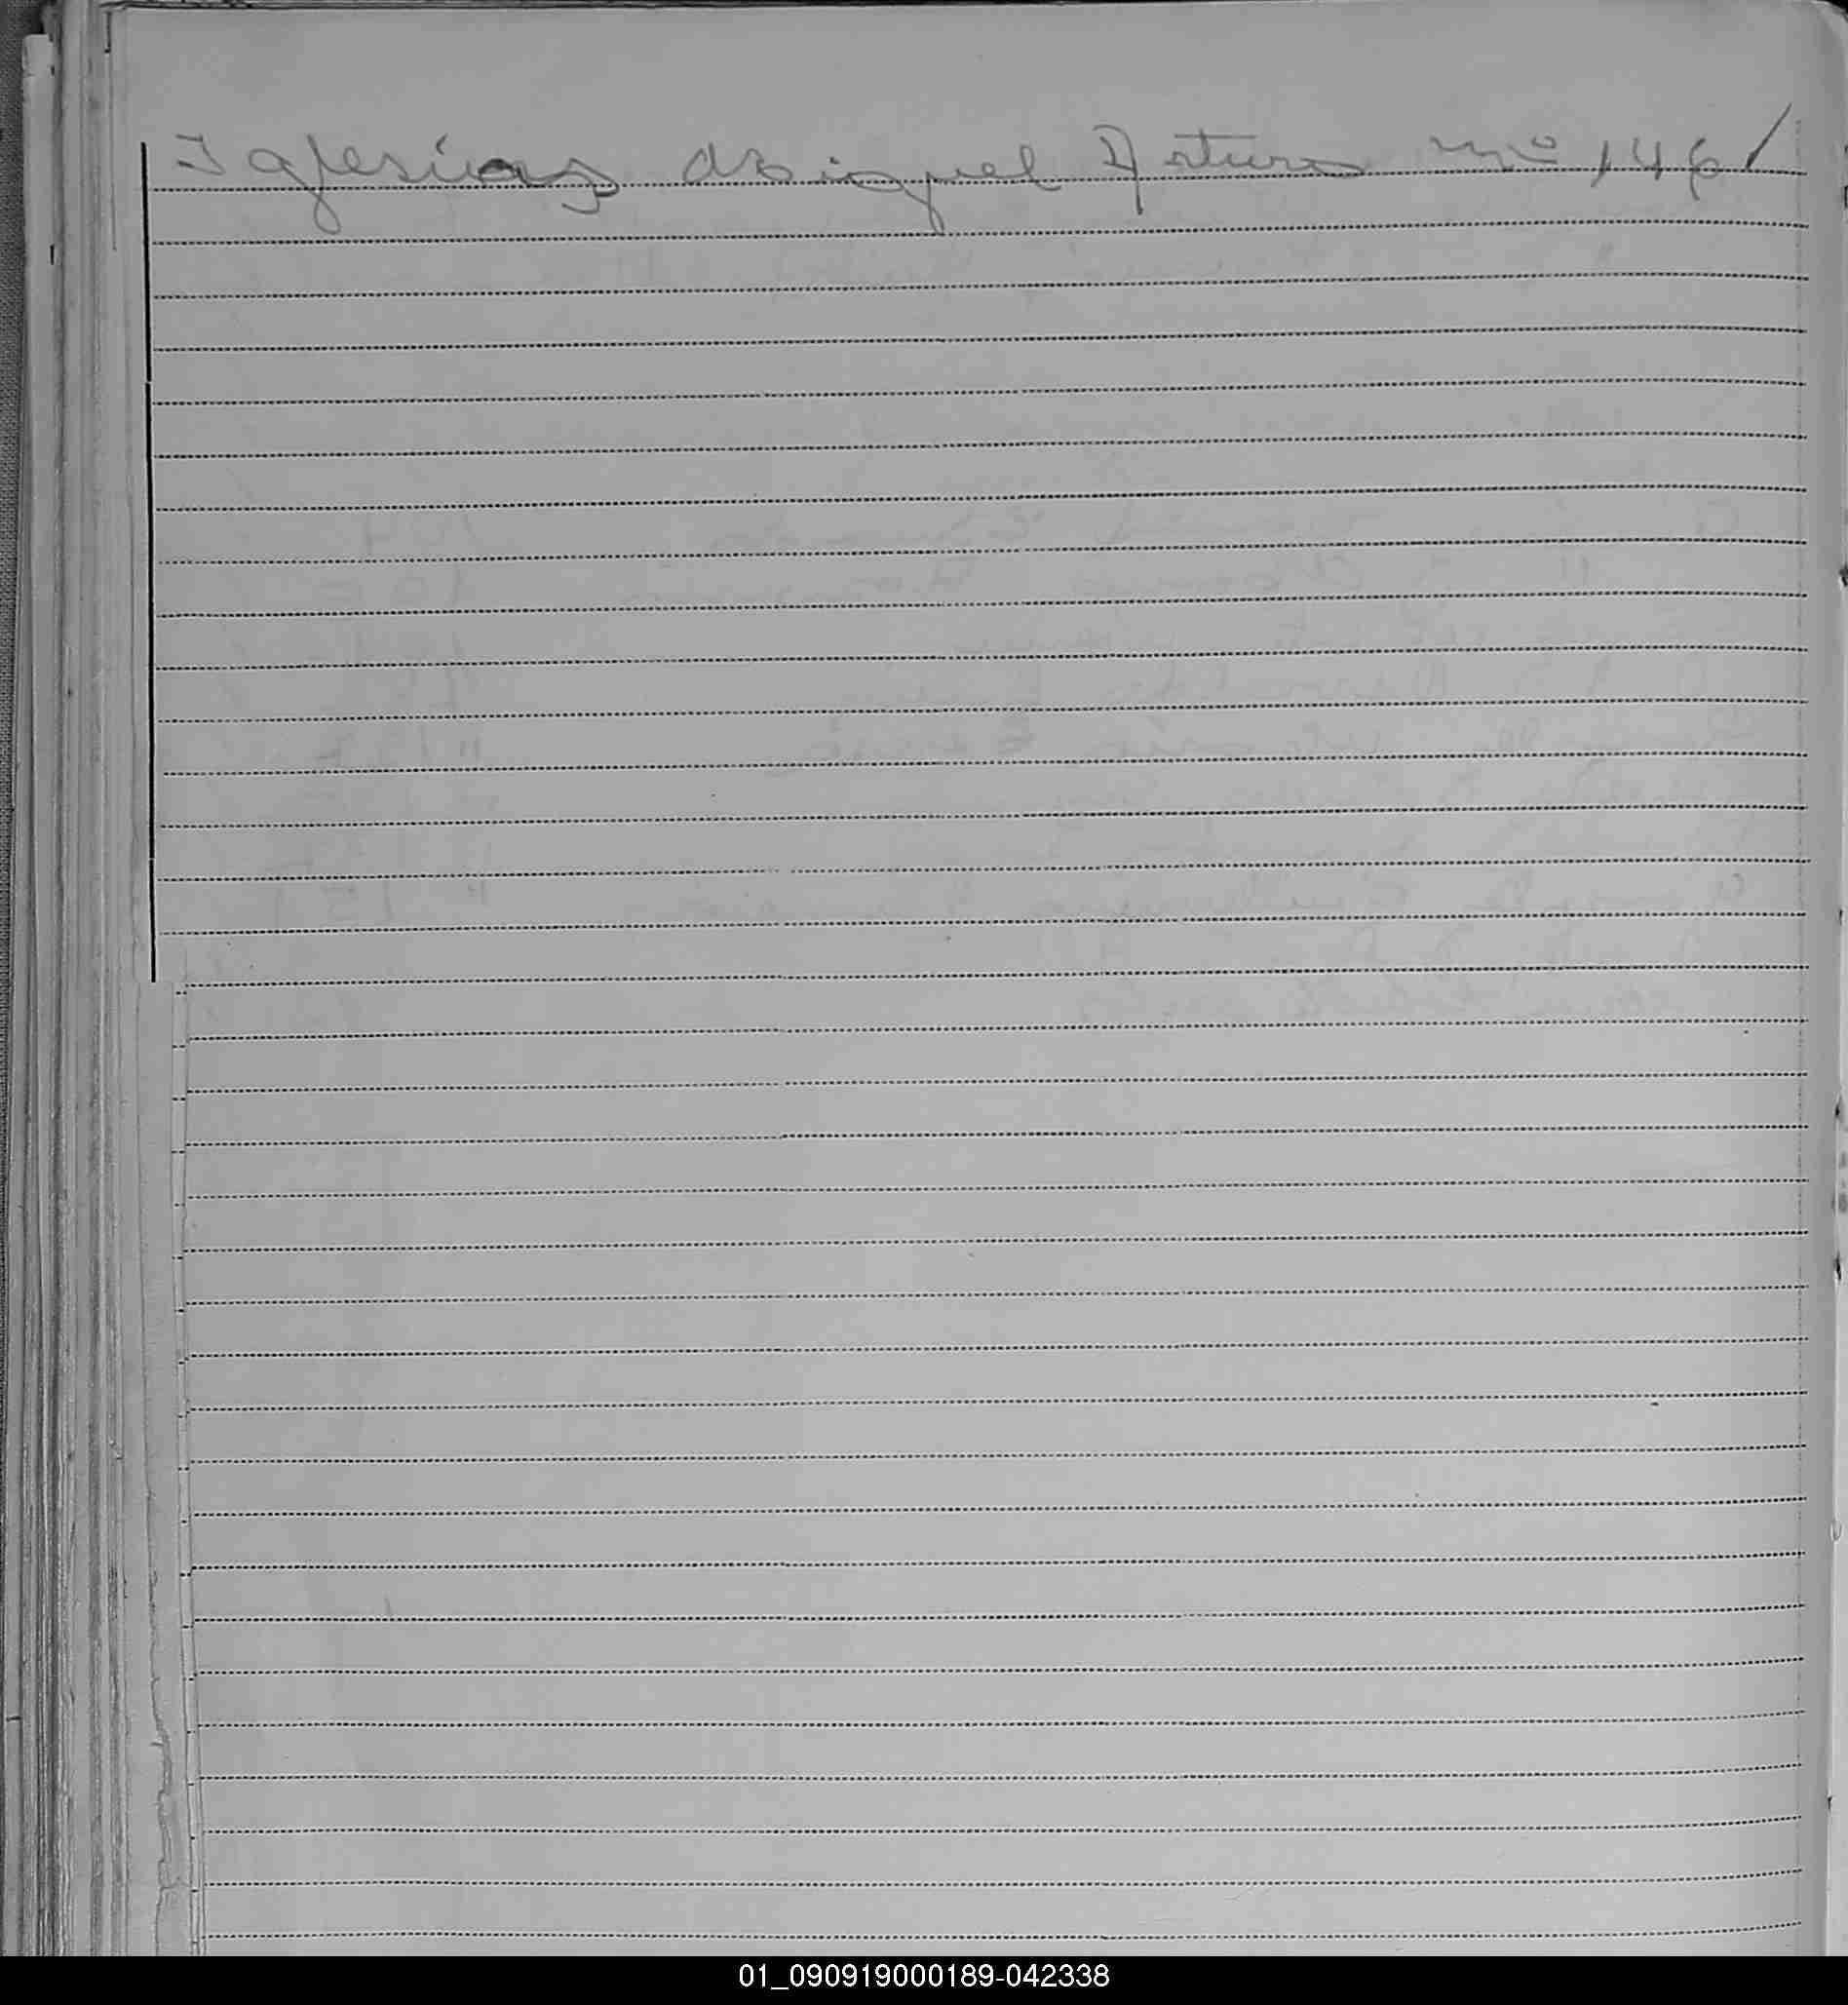 Iglesias Miguel Arturo nº 146 /
01_090919000189-042338